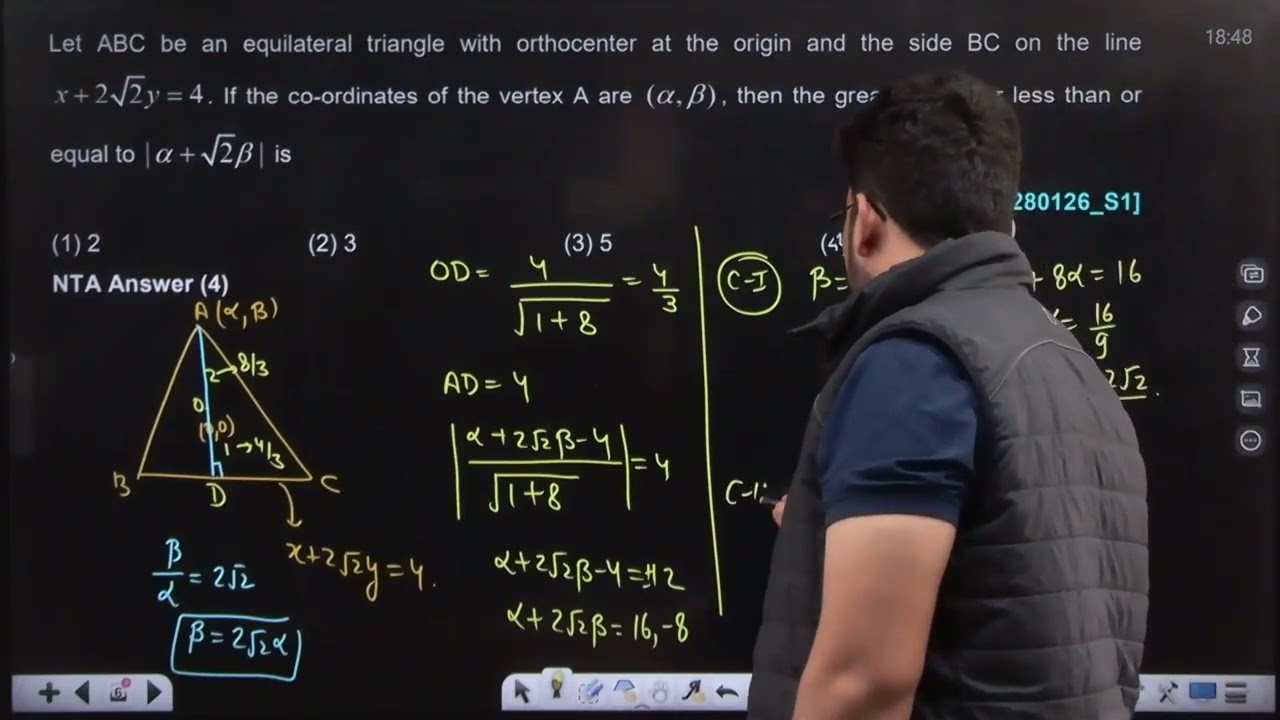 Let ABC be an equilateral triangle with orthocenter at the origin and the side BC on the line
18:48
x + 2√2y = 4. If the co-ordinates of the vertex A are (α, β), then the less than or
equal to |α + √2β| is
280126_S1]
(1) 2 (2) 3 (3) 5 (4)
NTA Answer (4)
A(α, β)
8/3
2
0
(0,0)
1→4/3
B D C
x+2√2y=4.
β/α = 2√2
β=2√2α
OD= 4/√(1+8) = 4/3
AD= 4
|(α+2√2β-4)/√(1+8)| = 4
α+2√2β-4=±12
α+2√2β=16,-8
C-I β= + 8α = 16
= 16/9
2√2.
C-I